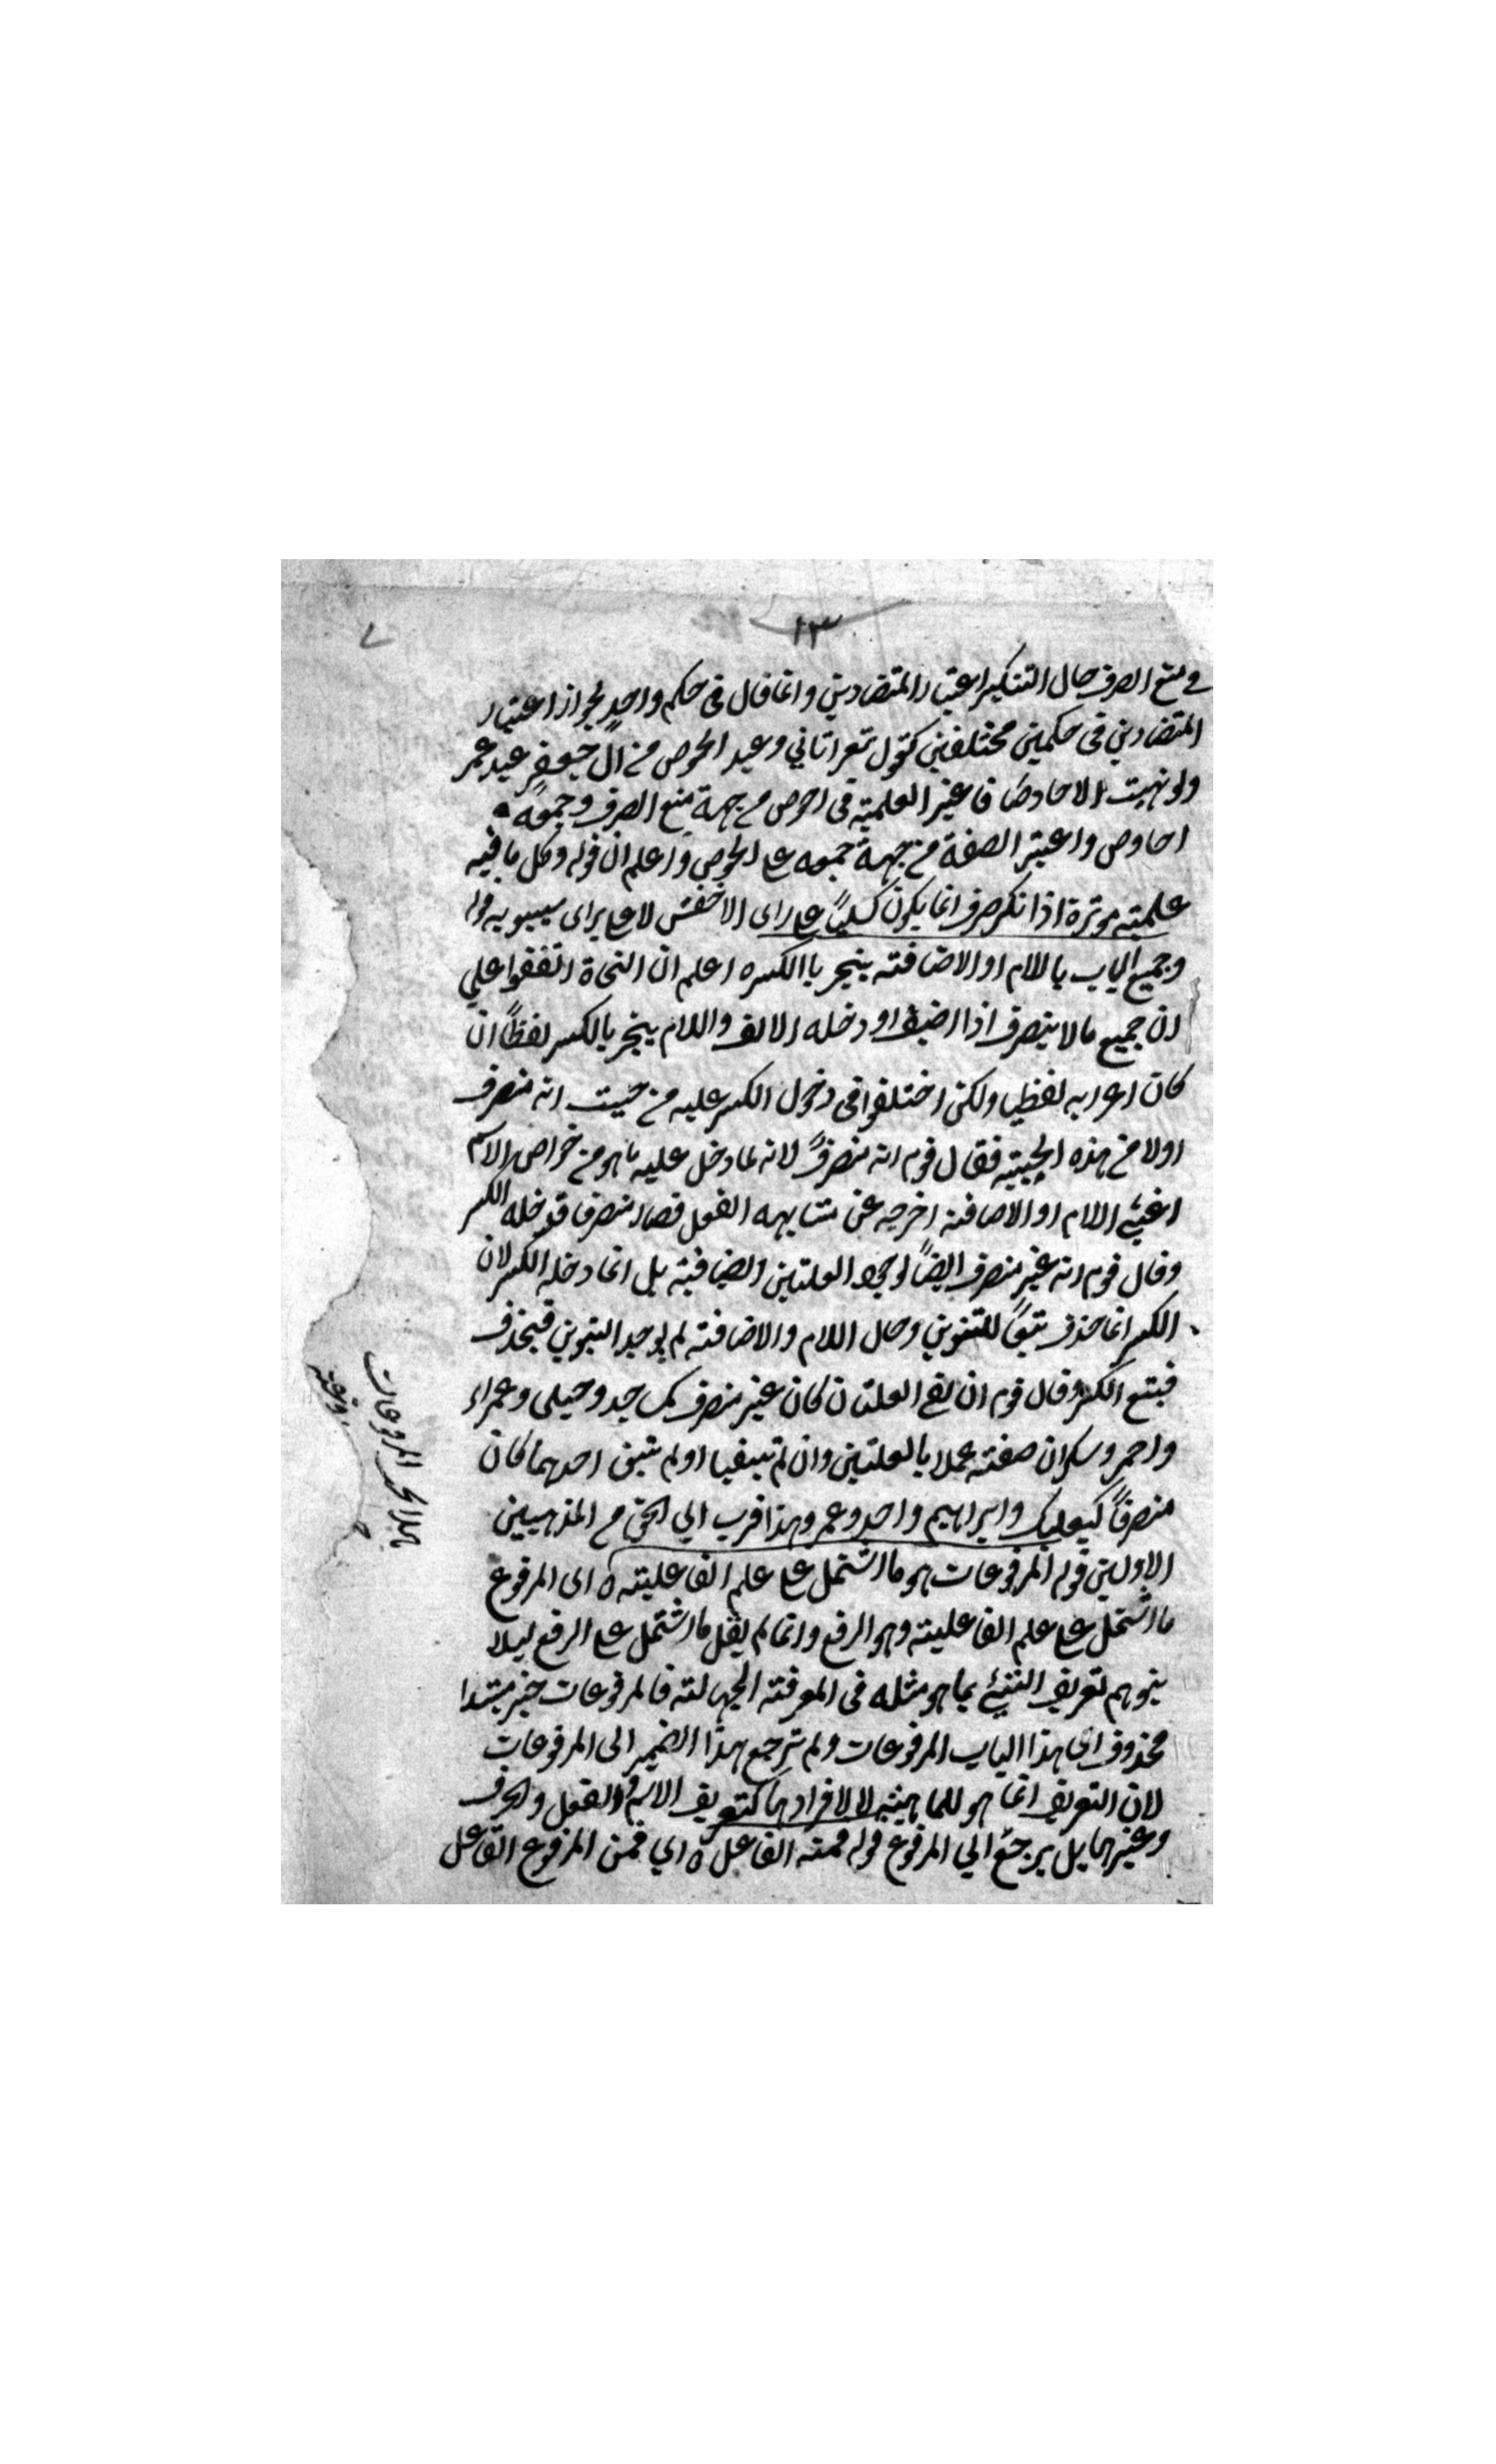 ١٣
في منع الصرف حال التنكير اعتبار المتضادين وانما قال في حكم واحد لجواز اعتبار
المتضادين في حكمين مختلفين كقول شعر اتاني وعيد الحوص من ال جعفر عبد عمر
ولو نهيت الاحاوصا فاعتبر العلمية في احوص من جهة منع الصرف وجمعه
احاوص واعتبر الصفة من جهة جمعه على الحوص واعلم ان قوله وكل ما فيه
علميته موثرة اذا نكر صرف انما يكون كليًا على راى الاخفش لا على راى سيبويه قوله
وجميع الباب باللام او الاضافته ينجر باالكسره اعلم ان النحاة اتفقوا علي
ان جميع ما لا ينصرف اذا اضيف او دخله الالف واللام ينجر بالكسر لفظًا ان
كان اعرابه لفظيا ولكن اختلفوا في دخول الكسر عليه من حيث انه منصرف
اولا من هذه الحيثيه فقال قوم انه منصرفً لانه لما دخل عليه ما هو من خواص الاسم
اعني اللام او الاضافته اخرجه عن مشابهه الفعل فصار منصرفا فدخله الكسر
وقال قوم انه غير منصرف ايضًا لوجود العلتين الضافيته بل انما دخله الكسر لان
الكسر انما حذف تبعًا للتنوين وحال اللام والاضافته لم يوجد التنوين فيحذف
فيتبع الكسر وقال قوم ان بقي العلتان كان غير منصرف كمساجد وحبلى وحمراء
واحمر وسكران صفته عملا بالعلتين وان لم تبقيا او لم تبق احدهما كان
منصرفًا كبعلبك وابراهيم واحمد وعمر وهذا اقرب الي الحق من المذهبين
الاولين قوله المرفوعات هو ما اشتمل على علم الفاعليته ه اى المرفوع
ما اشتمل على علم الفاعليته وهو الرفع وانما لم يقل ما اشتمل على الرفع ليلا
يتوهم تعريف الشيئ بما هو مثله في المعرفته الجهالته فالمرفوعات خبر مبتدا
محذوف اى هذا الباب المرفوعات ولم ترجع هذا الضمير الى المرفوعات
لان التعريف انما هو للماهيته لا لافرادها كتعريف الاسم والفعل والحرف
وغيرها بل يرجع الي المرفوع قوله فمنه الفاعل ه اي فمن المرفوع الفاعل
المرفوعات